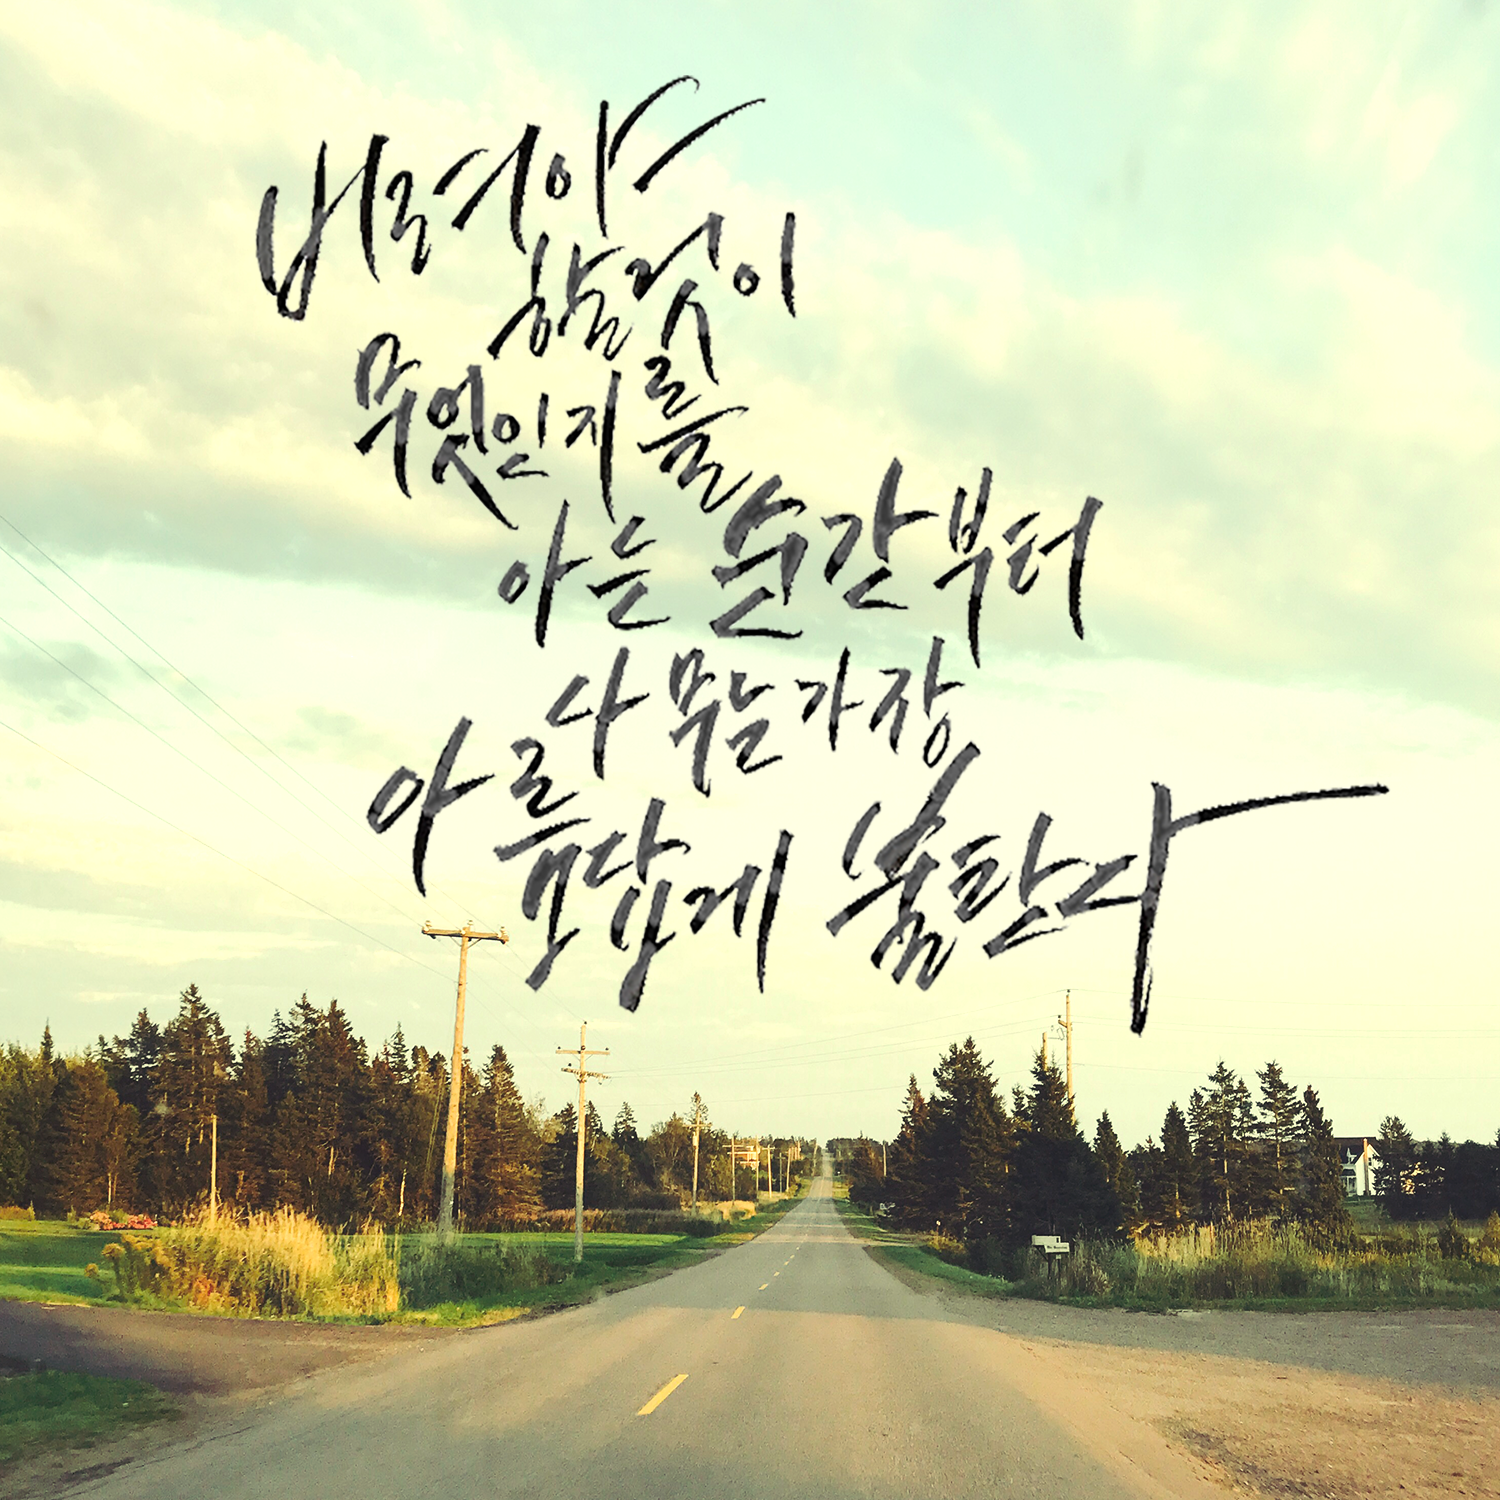 버려야
할 것이
무엇인지를
아는 순간부터
나무는 가장
아름답게 불탄다